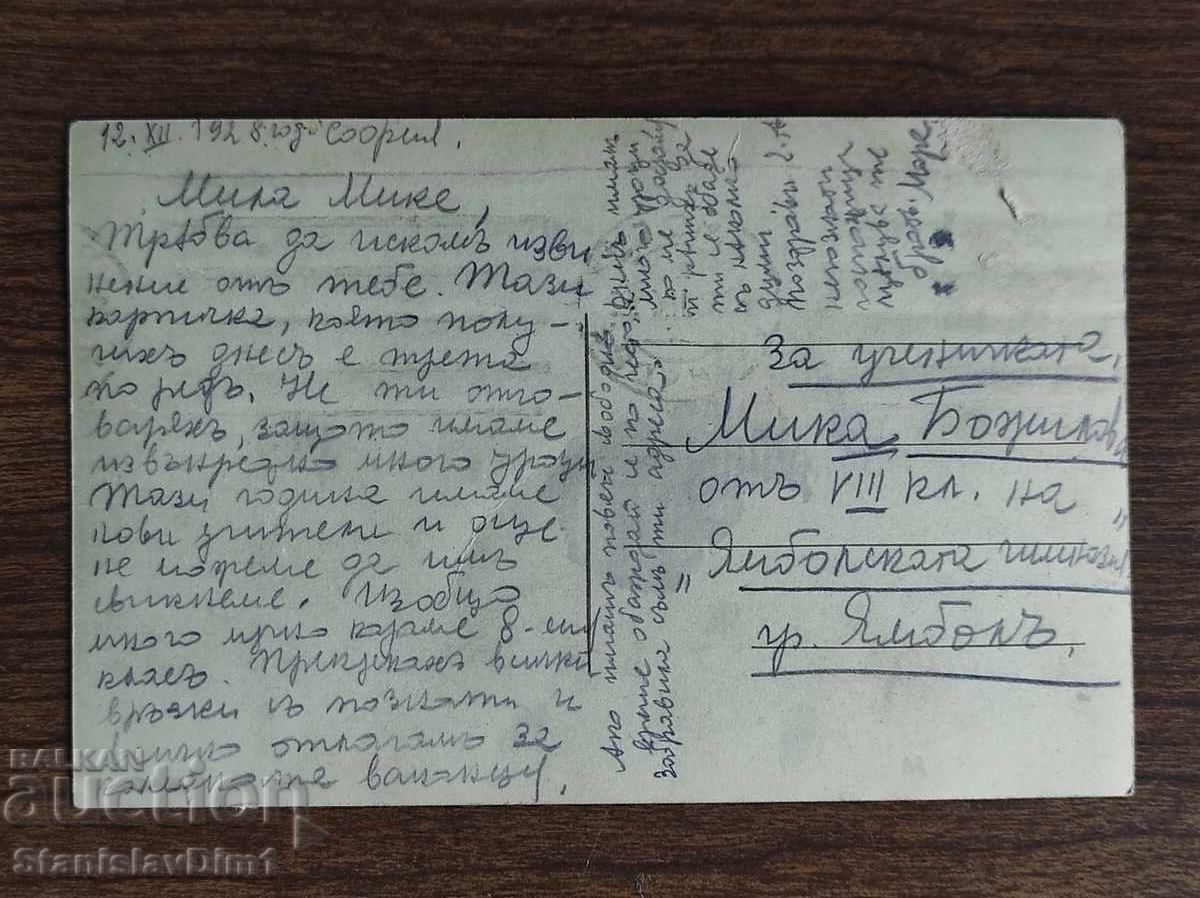 12. XII. 1928 год. София.
Мила Мике,
Трѣбва да искамъ изви
нение отъ тебе. Тази
картичка, която полу-
чихъ днесъ е трета
по редъ. Не ти отго-
варяхъ, защото имаме
извънредно много уроци
Тази година имаме
нови учители и още
не можеме да имъ
свикнеме. Изобщо
много мѫчно караме 8-ми
класъ. Прекѫснахъ всички
врѫзки съ познати и
всичко отлагамъ за
ваканцу.
Ако имашъ повече свободно
време обаждай се по често,
забравила съмъ ти адреса
имамъ
много уроци
но ще гледамъ
ти се обаде
съ няколко
думи
Поздрави
целува те
За ученичката,
Мика Божилова
отъ VIII кл. на
"Ямболската гимназия"
гр. Ямболъ.
BALKAN
auction
StanislavDim1